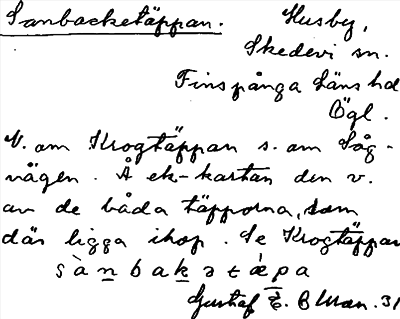 Sanbacketäppan. Husby,
Skedevi sn.
Finspånga läns hd
Ögl.
V. om Krogtäppan s. om Såg-
vägen. Å ek-kartan den v.
av de båda täpporna, som
där ligga ihop. Se Krogtäppan
sànbakətǽpa
Gustaf E. Blman. 31